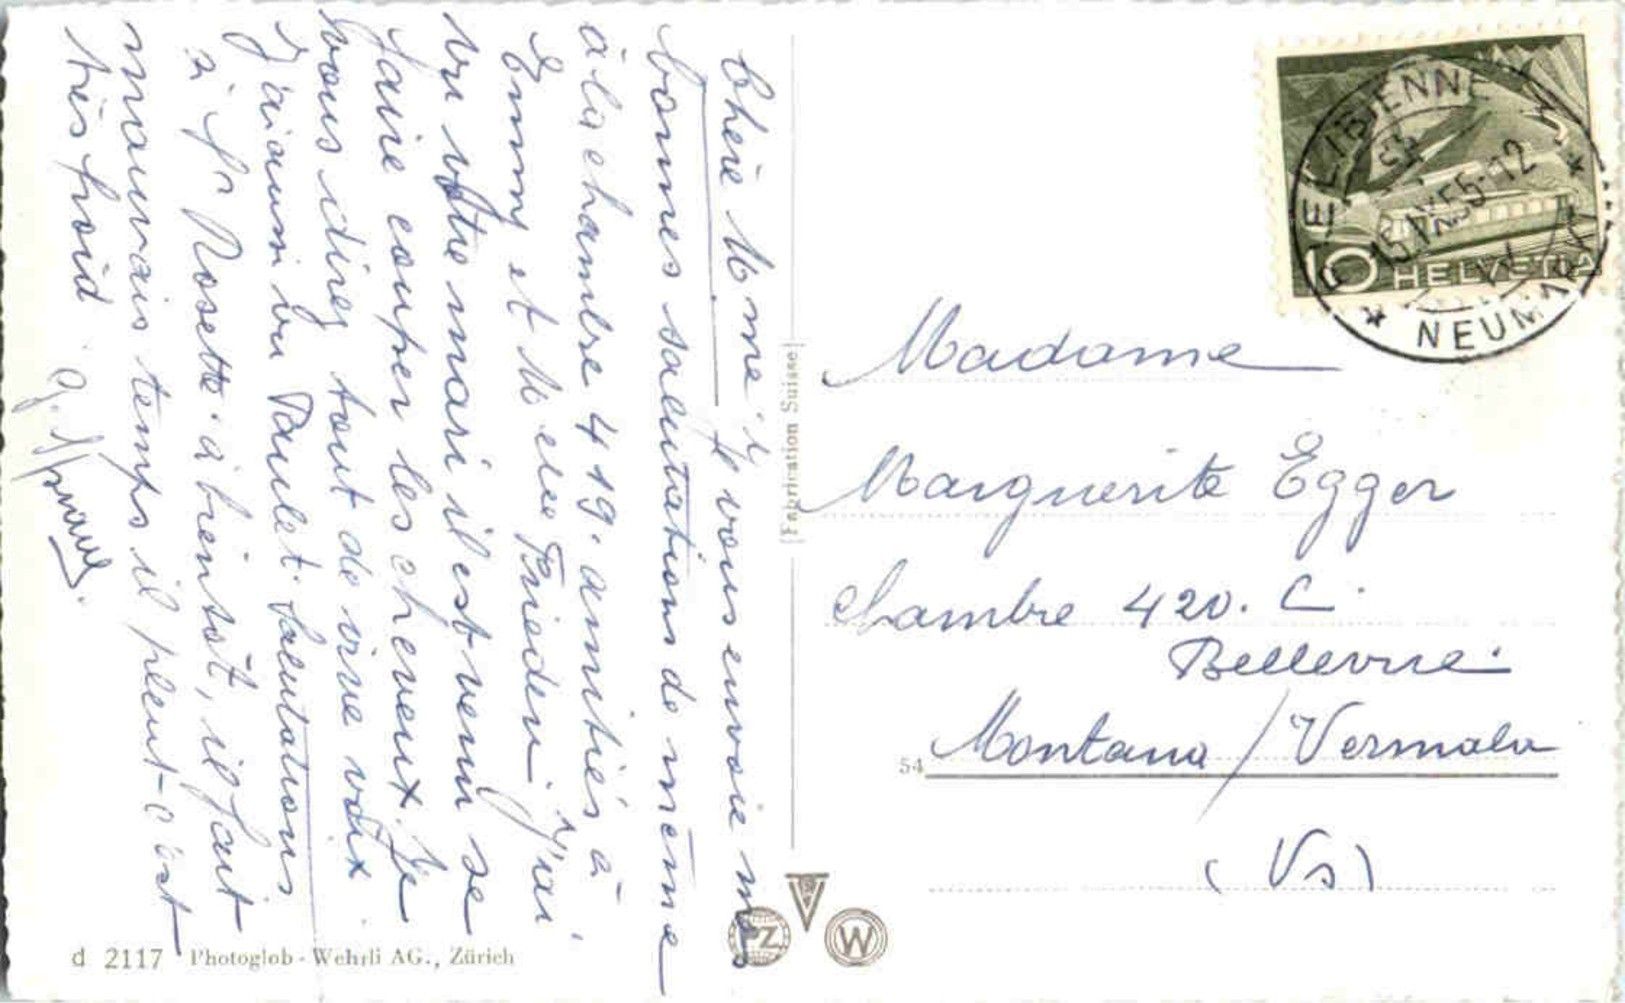 Chère Mme. Je vous envoie mes
bonnes salutations de même
à la chambre 419. amitiés à
Emmy et Mcee Frieden j'ai
vu vôtre mari il est venu se
faire couper les cheveux. Je
vous direz tout de vive voix
J'ai aussi vu Paulet. Salutations
à Rosette. à bientôt, il fait
mauvais temps il pleut c'est
très froid.
Madame
Marguerite Egger
Chambre 420. C.
Bellevue.
Montana / Vermala
(Vs)
[Fabrication Suisse]
54
d 2117 Photoglob - Wehrli AG., Zürich
PZ
W
10 HELVETIA
BIENNE
NEUMARKT